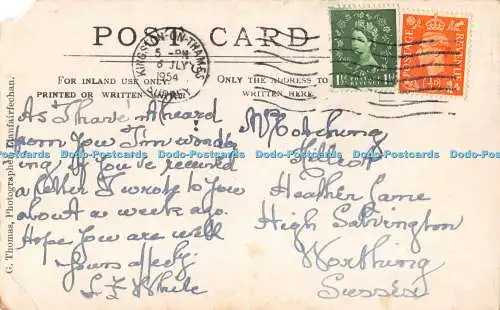 POST CARD
KINGSTON-ON-THAMES
5 - PM
8 JLY
1954
SURREY
FOR INLAND USE ONLY
PRINTED OR WRITTEN
ONLY THE ADDRESS TO
WRITTEN HERE.
POSTAGE REVENUE
1½D 1½D
G. Thomas, Photographer, Llanfairfechan.
As I have n't heard
from you I'm wonder
ing if you've received
a letter I wrote to you
about a week ago.
Hope you are well
Yours affecly.
White
Hillcot
Heather Lane
High Salvington
Worthing
Sussex
Dodo-Postcards Dodo-Postcards Dodo-Postcards Dodo-Postcards Dodo-Postcards